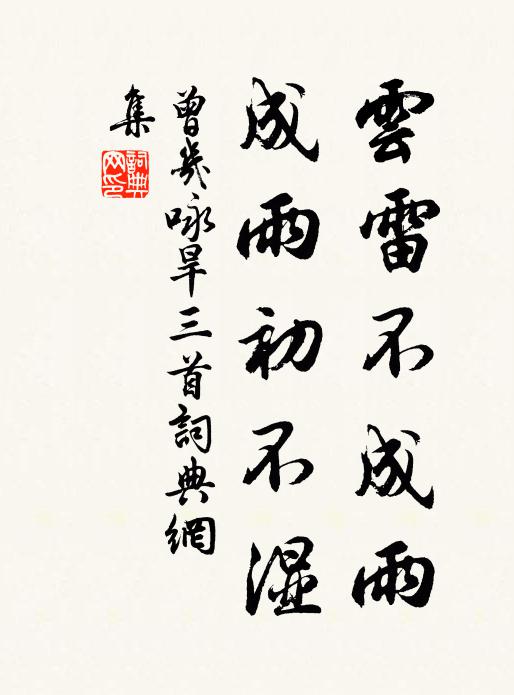 雲雷不成雨
成雨初不湿
曾幾咏旱三首詞典網
集
詞典
网印